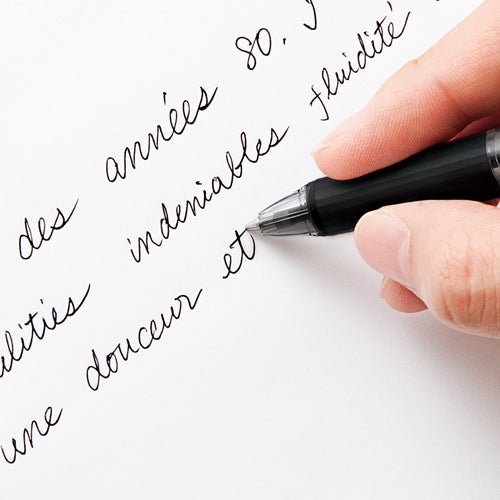 des années 80.
ulities indeniables fluidité
une douceur et